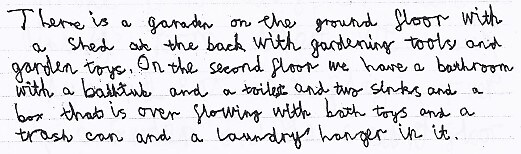 There is a garaden on the ground floor with
a shed at the back with gardening tools and
garden toys. On the second floor we have a bathroom
with a bathtub and a toilet and two sinks and a
box that is over flowing with bath toys and a
trash can and a laundry hanger in it.